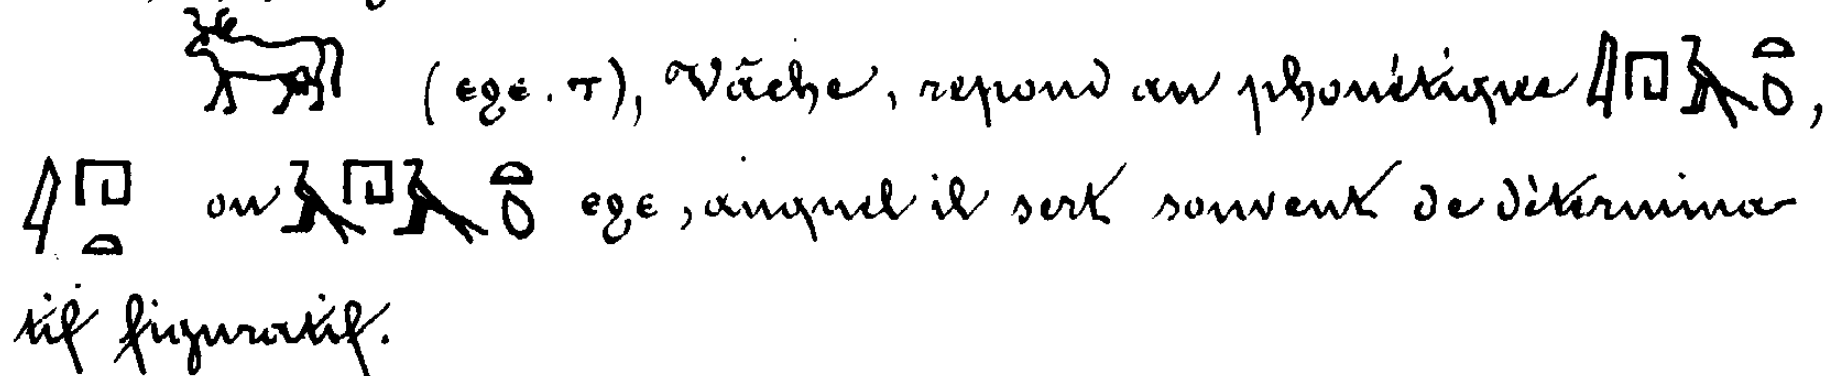 𓃒 (ⲉϩⲉ . ⲧ), Vâche, repond au phonétique 𓇋𓉔𓄿𓏏𓆇,
𓇋𓉔𓏏 ou 𓄿𓉔𓄿𓏏𓆇 ⲉϩⲉ, auquel il sert souvent de détermina-
tif figuratif.